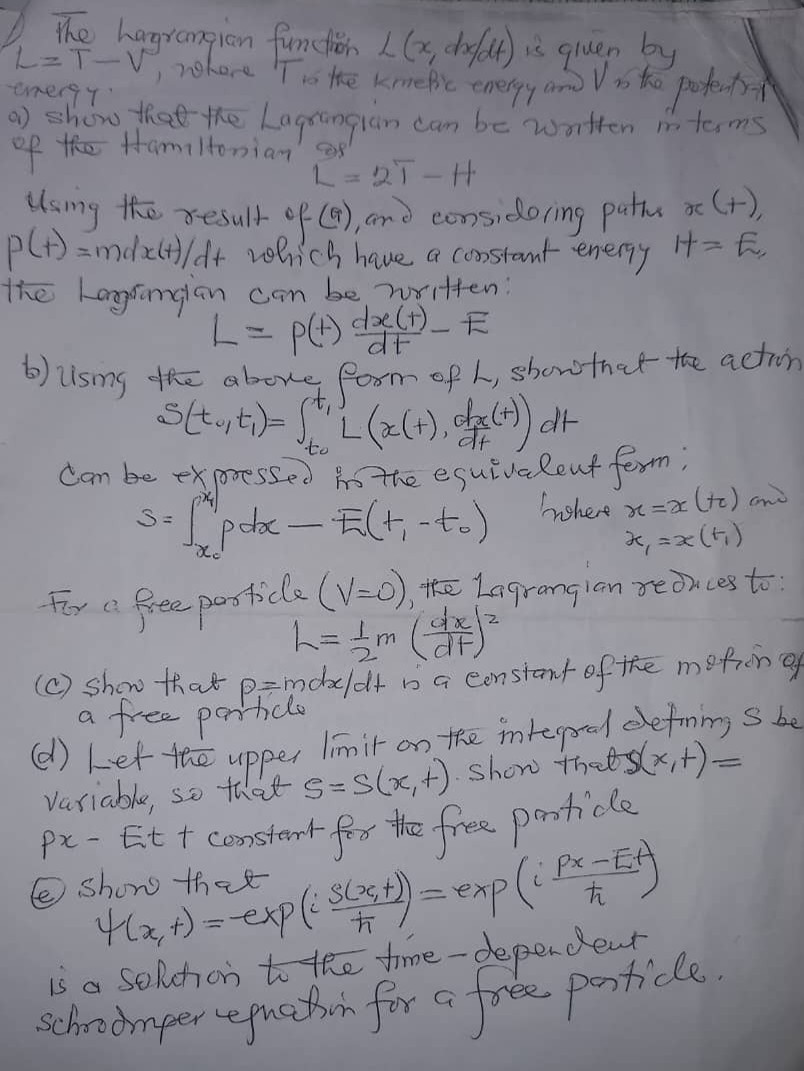 1) The Lagrangian function L(x, dx/dt) is given by
L = T - V, where T is the kinetic energy and V is the potential
energy.
a) show that the Lagrangian can be written in terms
of the Hamiltonian as
L = 2T - H
Using the result of (a), and considering paths x(t),
p(t) = mdx(t)/dt which have a constant energy H = E,
the Lagrangian can be written:
L = p(t) dx(t)/dt - E
b) Using the above form of L, show that the action
S(t₀, t₁) = ∫_{t₀}^{t₁} L(x(t), dx/dt(t)) dt
Can be expressed in the equivalent form;
S = ∫_{x₀}^{x₁} pdx - E(t₁ - t₀) where x = x(t₀) and
x₁ = x(t₁)
For a free particle (V=0), the Lagrangian reduces to:
L = 1/2 m (dx/dt)²
(c) show that p = mdx/dt is a constant of the motion of
a free particle
(d) Let the upper limit on the integral defining S be
variable, so that S = S(x, t). Show that S(x, t) =
px - Et + constant for the free particle
(e) show that
Ψ(x, t) = exp(i S(x,t)/ħ) = exp(i px - Et/ħ)
is a solution to the time-dependent
schrodinger equation for a free particle.